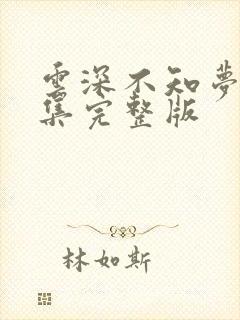 雲深不知夢
集完整版
林如斯